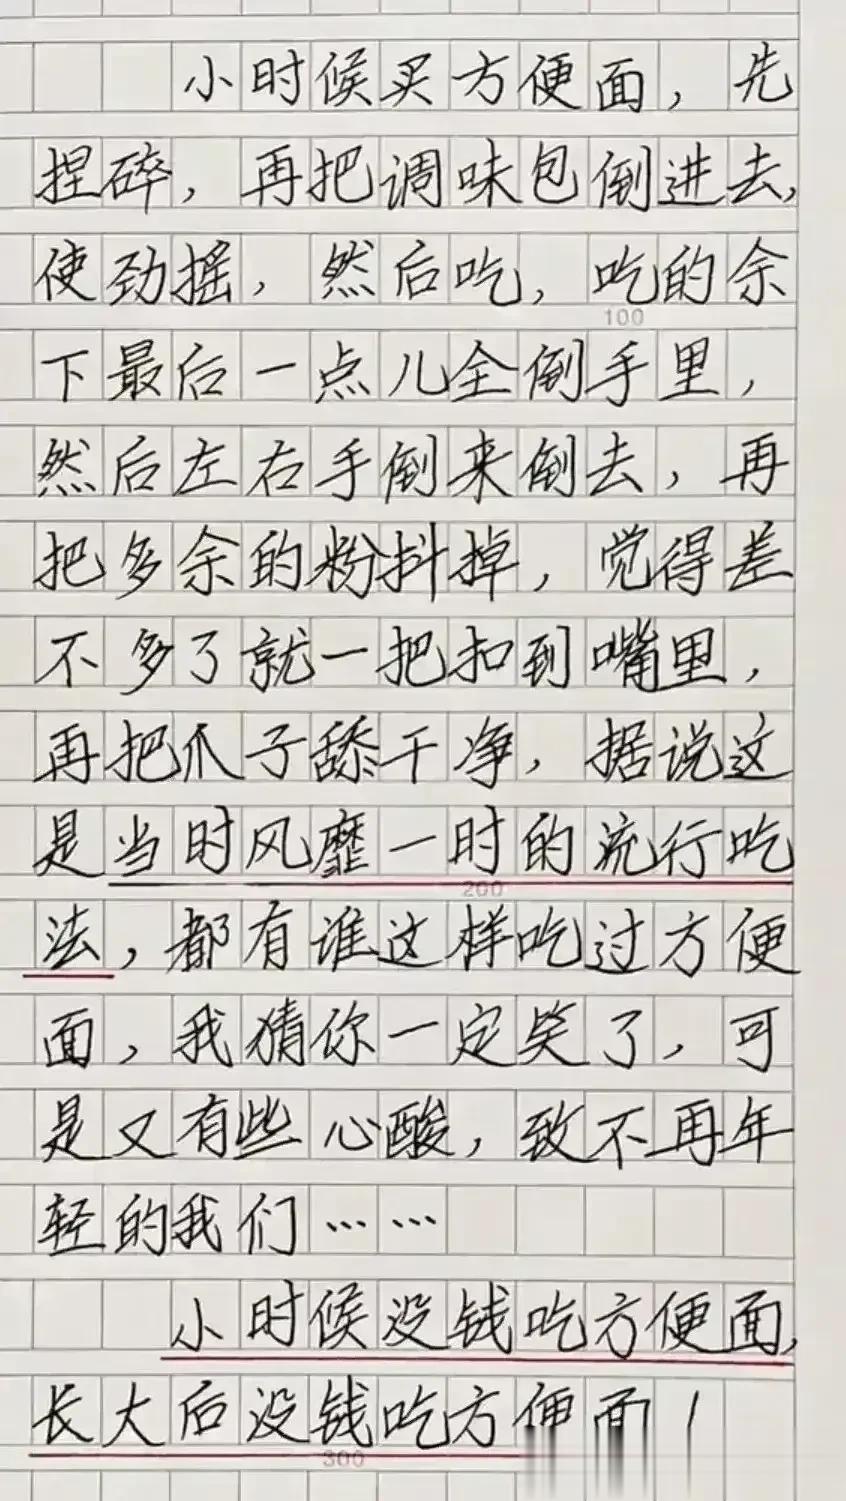 小时候买方便面，先
捏碎，再把调味包倒进去，
使劲摇，然后吃，吃的余
100
下最后一点儿全倒手里，
然后左右手倒来倒去，再
把多余的粉抖掉，觉得差
不多了就一把扣到嘴里，
再把爪子舔干净，据说这
是当时风靡一时的流行吃
200
法，都有谁这样吃过方便
面，我猜你一定笑了，可
是又有些心酸，致不再年
轻的我们……
小时候没钱吃方便面，
长大后没钱吃方便面！
300